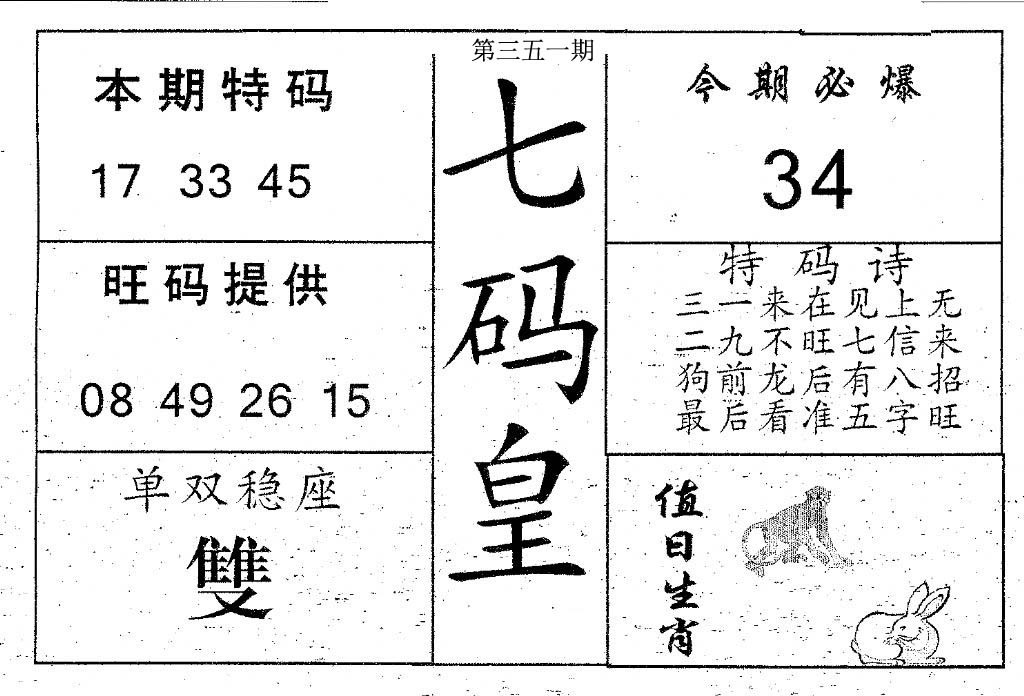 第三五一期
七码皇
本期特码
17 33 45
旺码提供
08 49 26 15
单双稳座
雙
今期必爆
34
特码诗
三一来在见上无
二九不旺七信来
狗前龙后有八招
最后看准五字旺
值日生肖